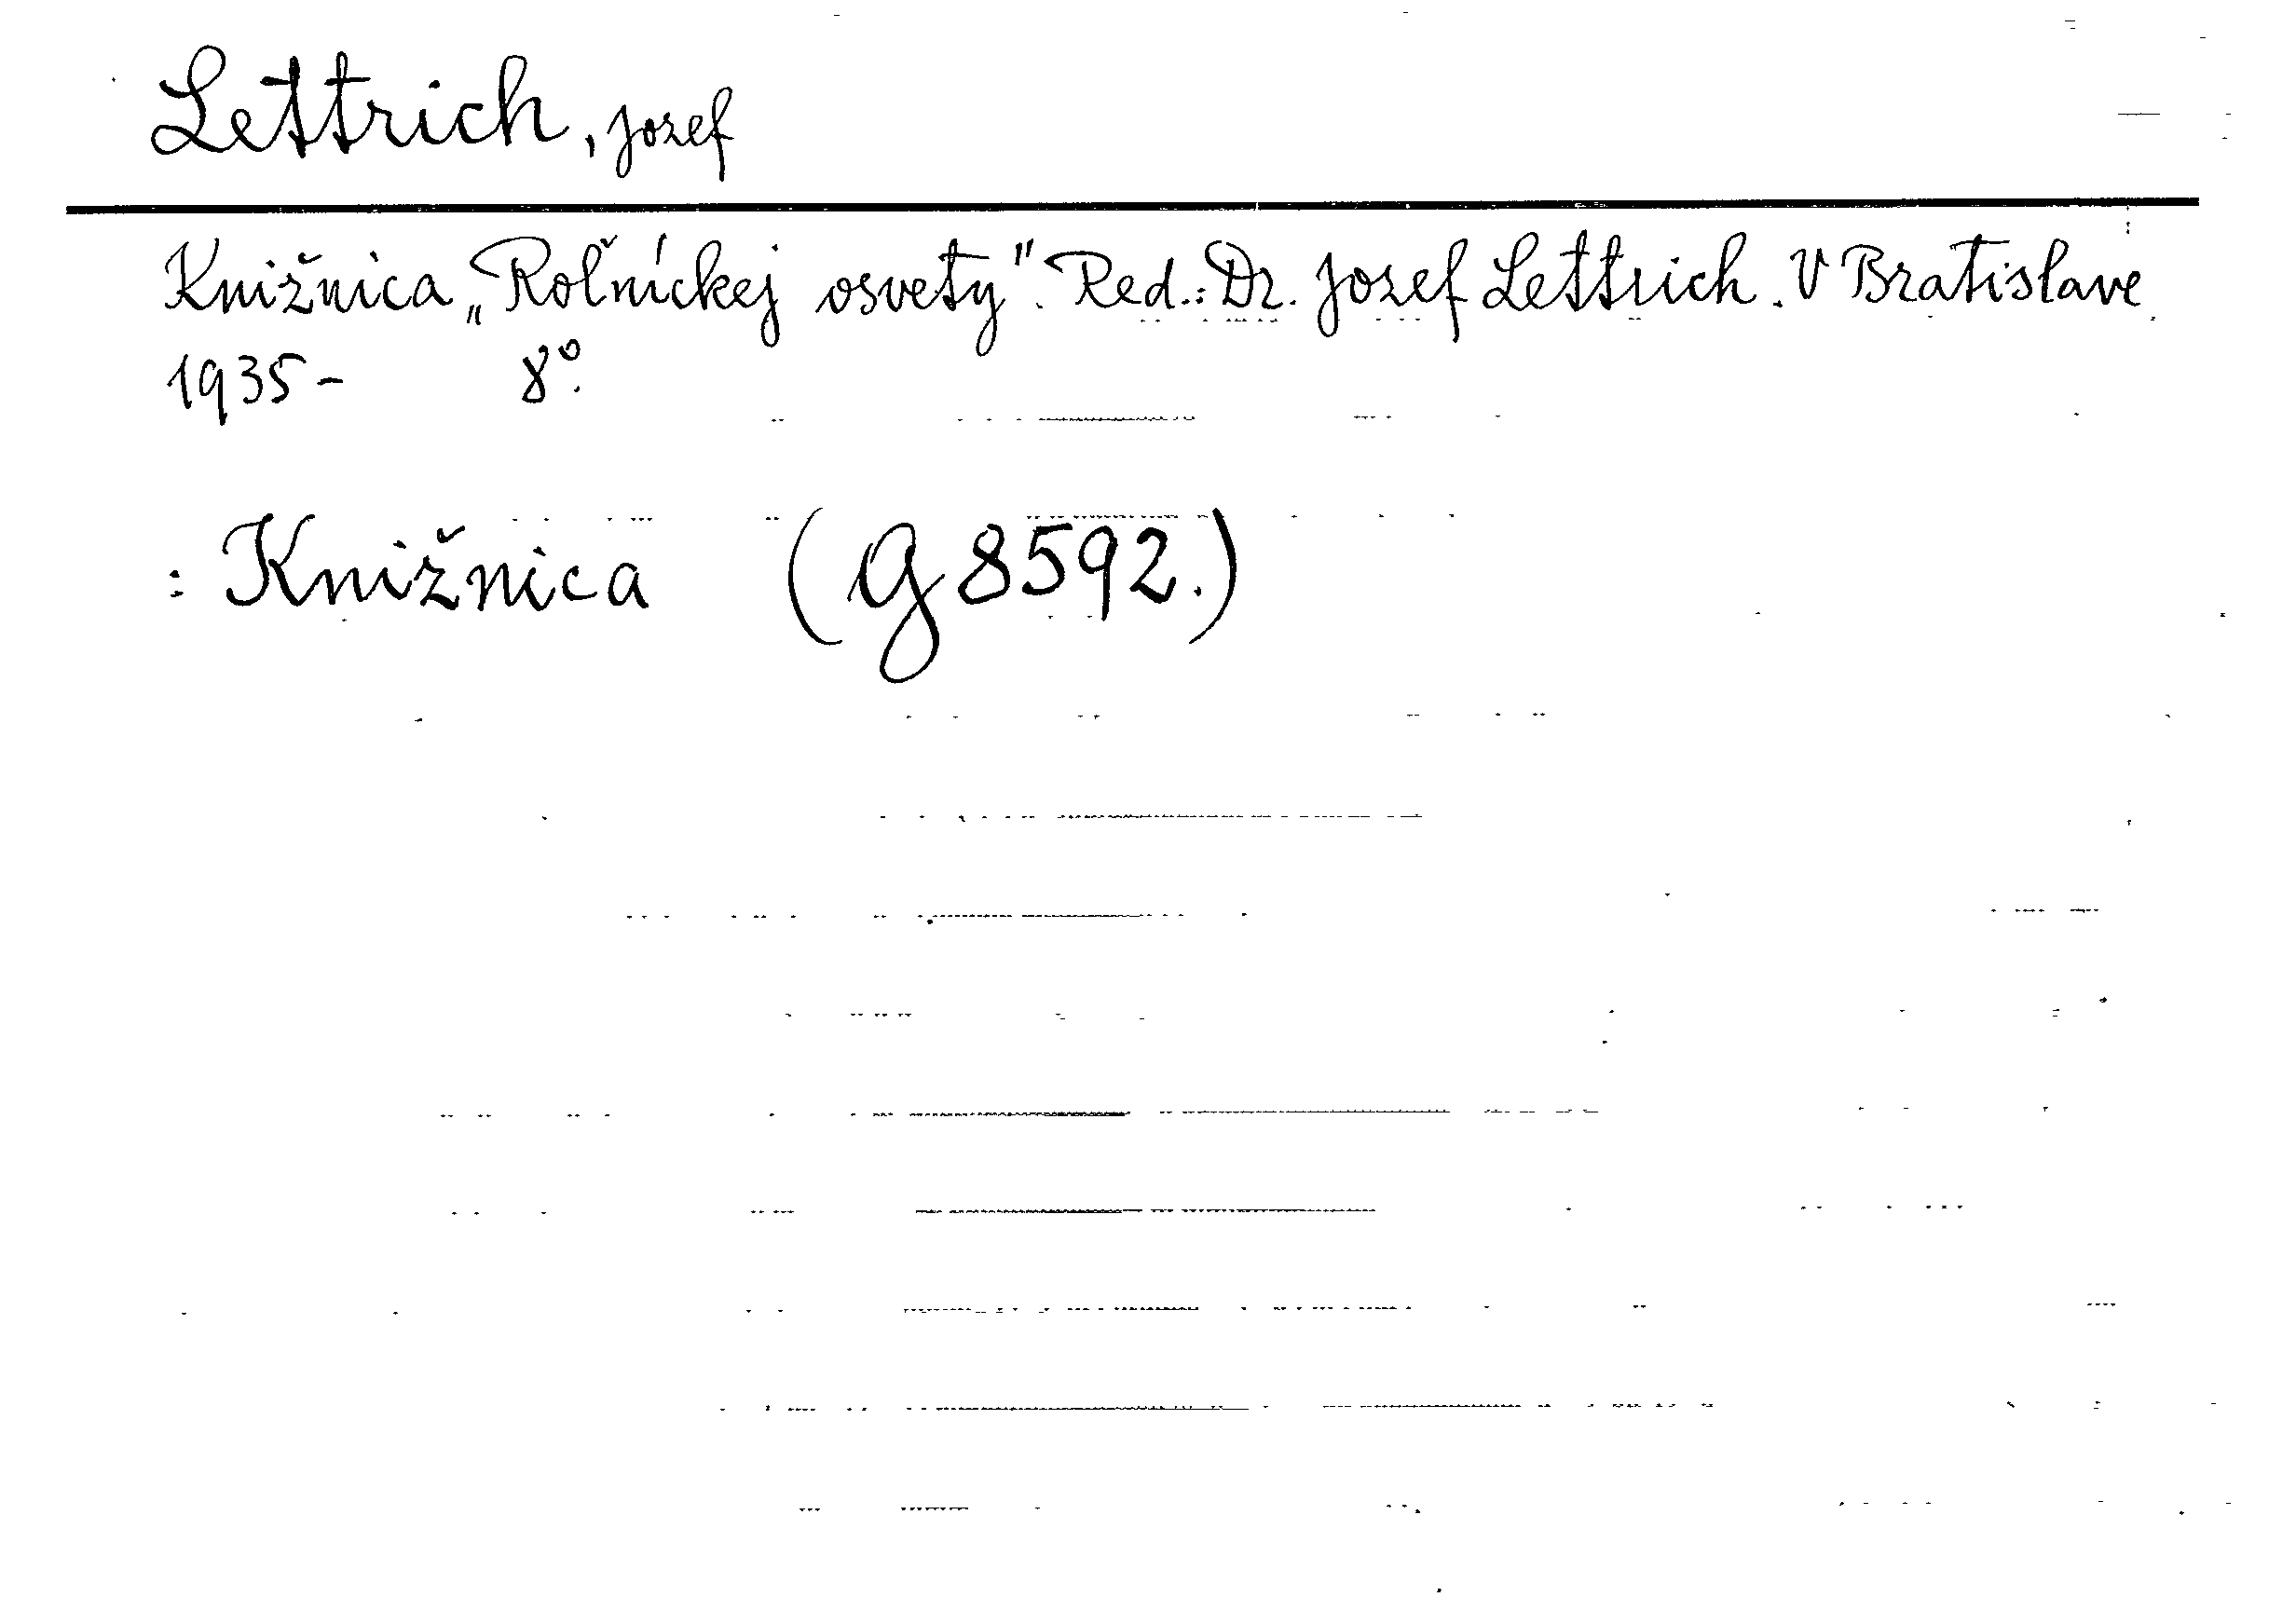 Lettrich, Jozef
Knižnica „Roľníckej osvety". Red.: Dr. Jozef Lettrich. V Bratislave
1935- 8°.
: Knižnica (G 8592.)